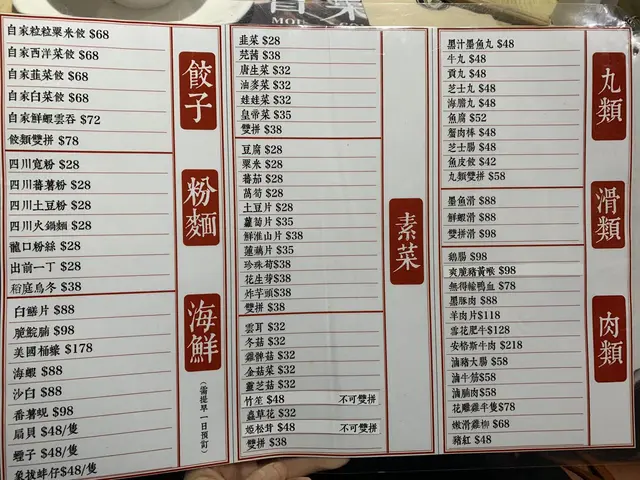 餃子
自家粒粒粟米餃 $68
自家西洋菜餃 $68
自家韮菜餃 $68
自家白菜餃 $68
自家鮮蝦雲吞 $72
餃類雙拼 $78
粉麵
四川寬粉 $28
四川蕃薯粉 $28
四川土豆粉 $28
四川火鍋麵 $28
龍口粉絲 $28
出前一丁 $28
稻庭烏冬 $38
海鮮
(需提早一日預訂)
白鱔片 $88
脆脘腩 $98
美國桶蠔 $178
海蝦 $88
沙白 $88
番薯蜆 $98
扇貝 $48/隻
蟶子 $48/隻
象拔蚌仔 $48/隻
素菜
韮菜 $28
芫茜 $38
唐生菜 $32
油麥菜 $32
娃娃菜 $32
皇帝菜 $35
雙拼 $38
豆腐 $28
粟米 $28
蕃茄 $28
萵筍 $28
土豆片 $28
蘿蔔片 $35
鮮淮山片 $38
蓮藕片 $35
珍珠筍 $38
花生芽 $38
炸芋頭 $38
雙拼 $38
雲耳 $32
冬菇 $32
雞髀菇 $32
金菇菜 $32
靈芝菇 $32
竹笙 $48 不可雙拼
蟲草花 $32
姬松茸 $48 不可雙拼
雙拼 $38
丸類
墨汁墨魚丸 $48
牛丸 $48
貢丸 $48
芝士丸 $48
海膽丸 $48
魚腐 $52
蟹肉棒 $48
芝士腸 $48
魚皮餃 $42
丸類雙拼 $58
滑類
墨魚滑 $88
鮮蝦滑 $88
雙拼滑 $98
肉類
鵝腸 $98
爽脆豬黃喉 $98
無得輸鴨血 $78
墨豚肉 $88
羊肉片 $118
雪花肥牛 $128
安格斯牛肉 $218
滷豬大腸 $58
滷牛筋 $58
滷腩肉 $58
花雕雞半隻 $78
嫩滑雞柳 $68
豬紅 $48